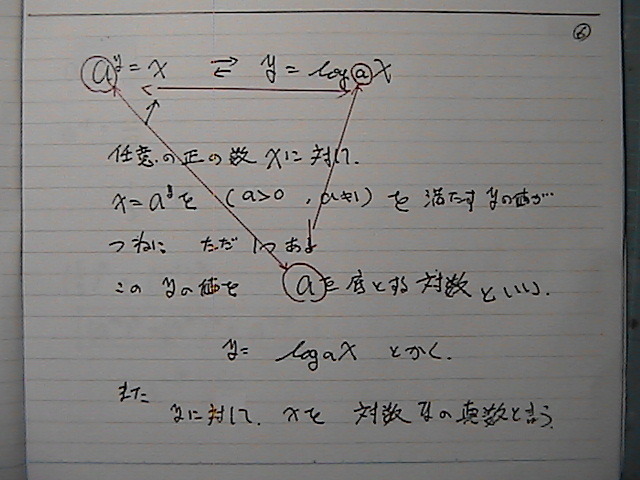 ⑥
a^y = x ⇄ y = log a x
任意の正の数 xに対して.
x = a^y を (a>0 , a≠1) を 満たす yの値が…
つねに ただ1つある
この yの値を aを底とする対数 といい.
y = log a x とかく.
また
yに対して. xを 対数 yの真数と言う.